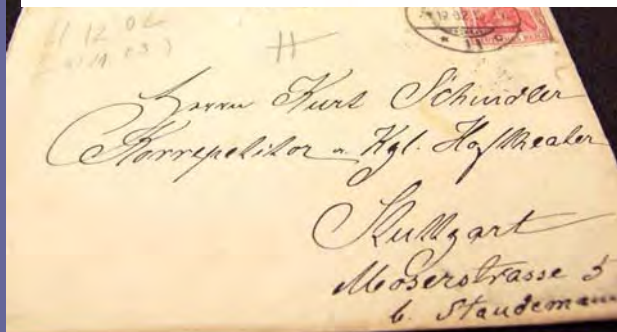 11 12 02
H
Herrn Kurt Schindler
Korrepetitor a. Kgl. Hoftheater
Stuttgart
Moserstrasse 5
b. Staudemann